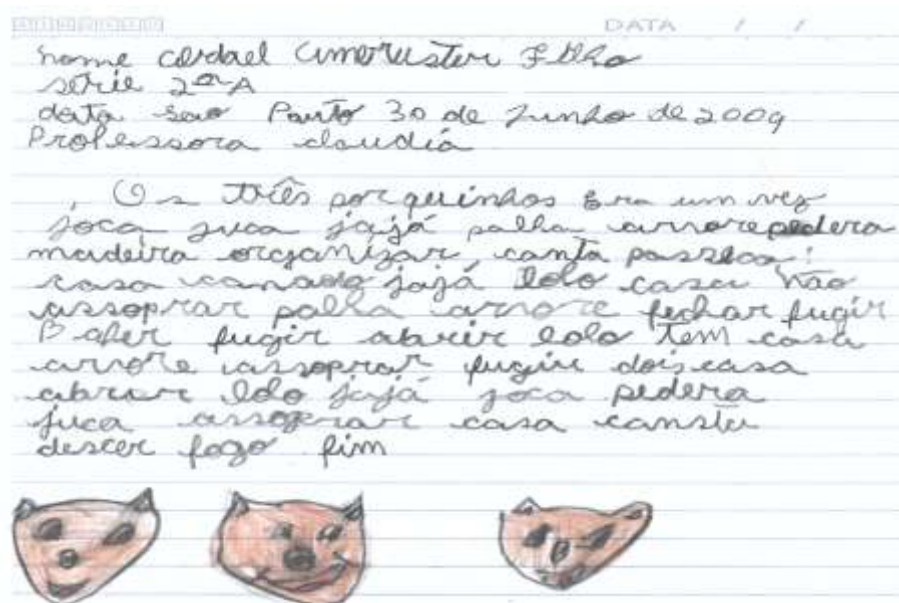 DATA / /
nome Filho
série 2ª A
data sao Paulo 30 de Junho de 2009
Professora claudia
Os três porquinhos Era um vez
joca juca jajá palha arvore pedera
madeira organizar, canta passeoa!
casa cansado jajá lobo casa não
assoprar palha arvore fechar fugir
B afer fugir abrir lobo tem casa
arvore assoprar fugir dois casa
abrir lobo jajá joca pedera
juca assoprar casa
descer fogo fim